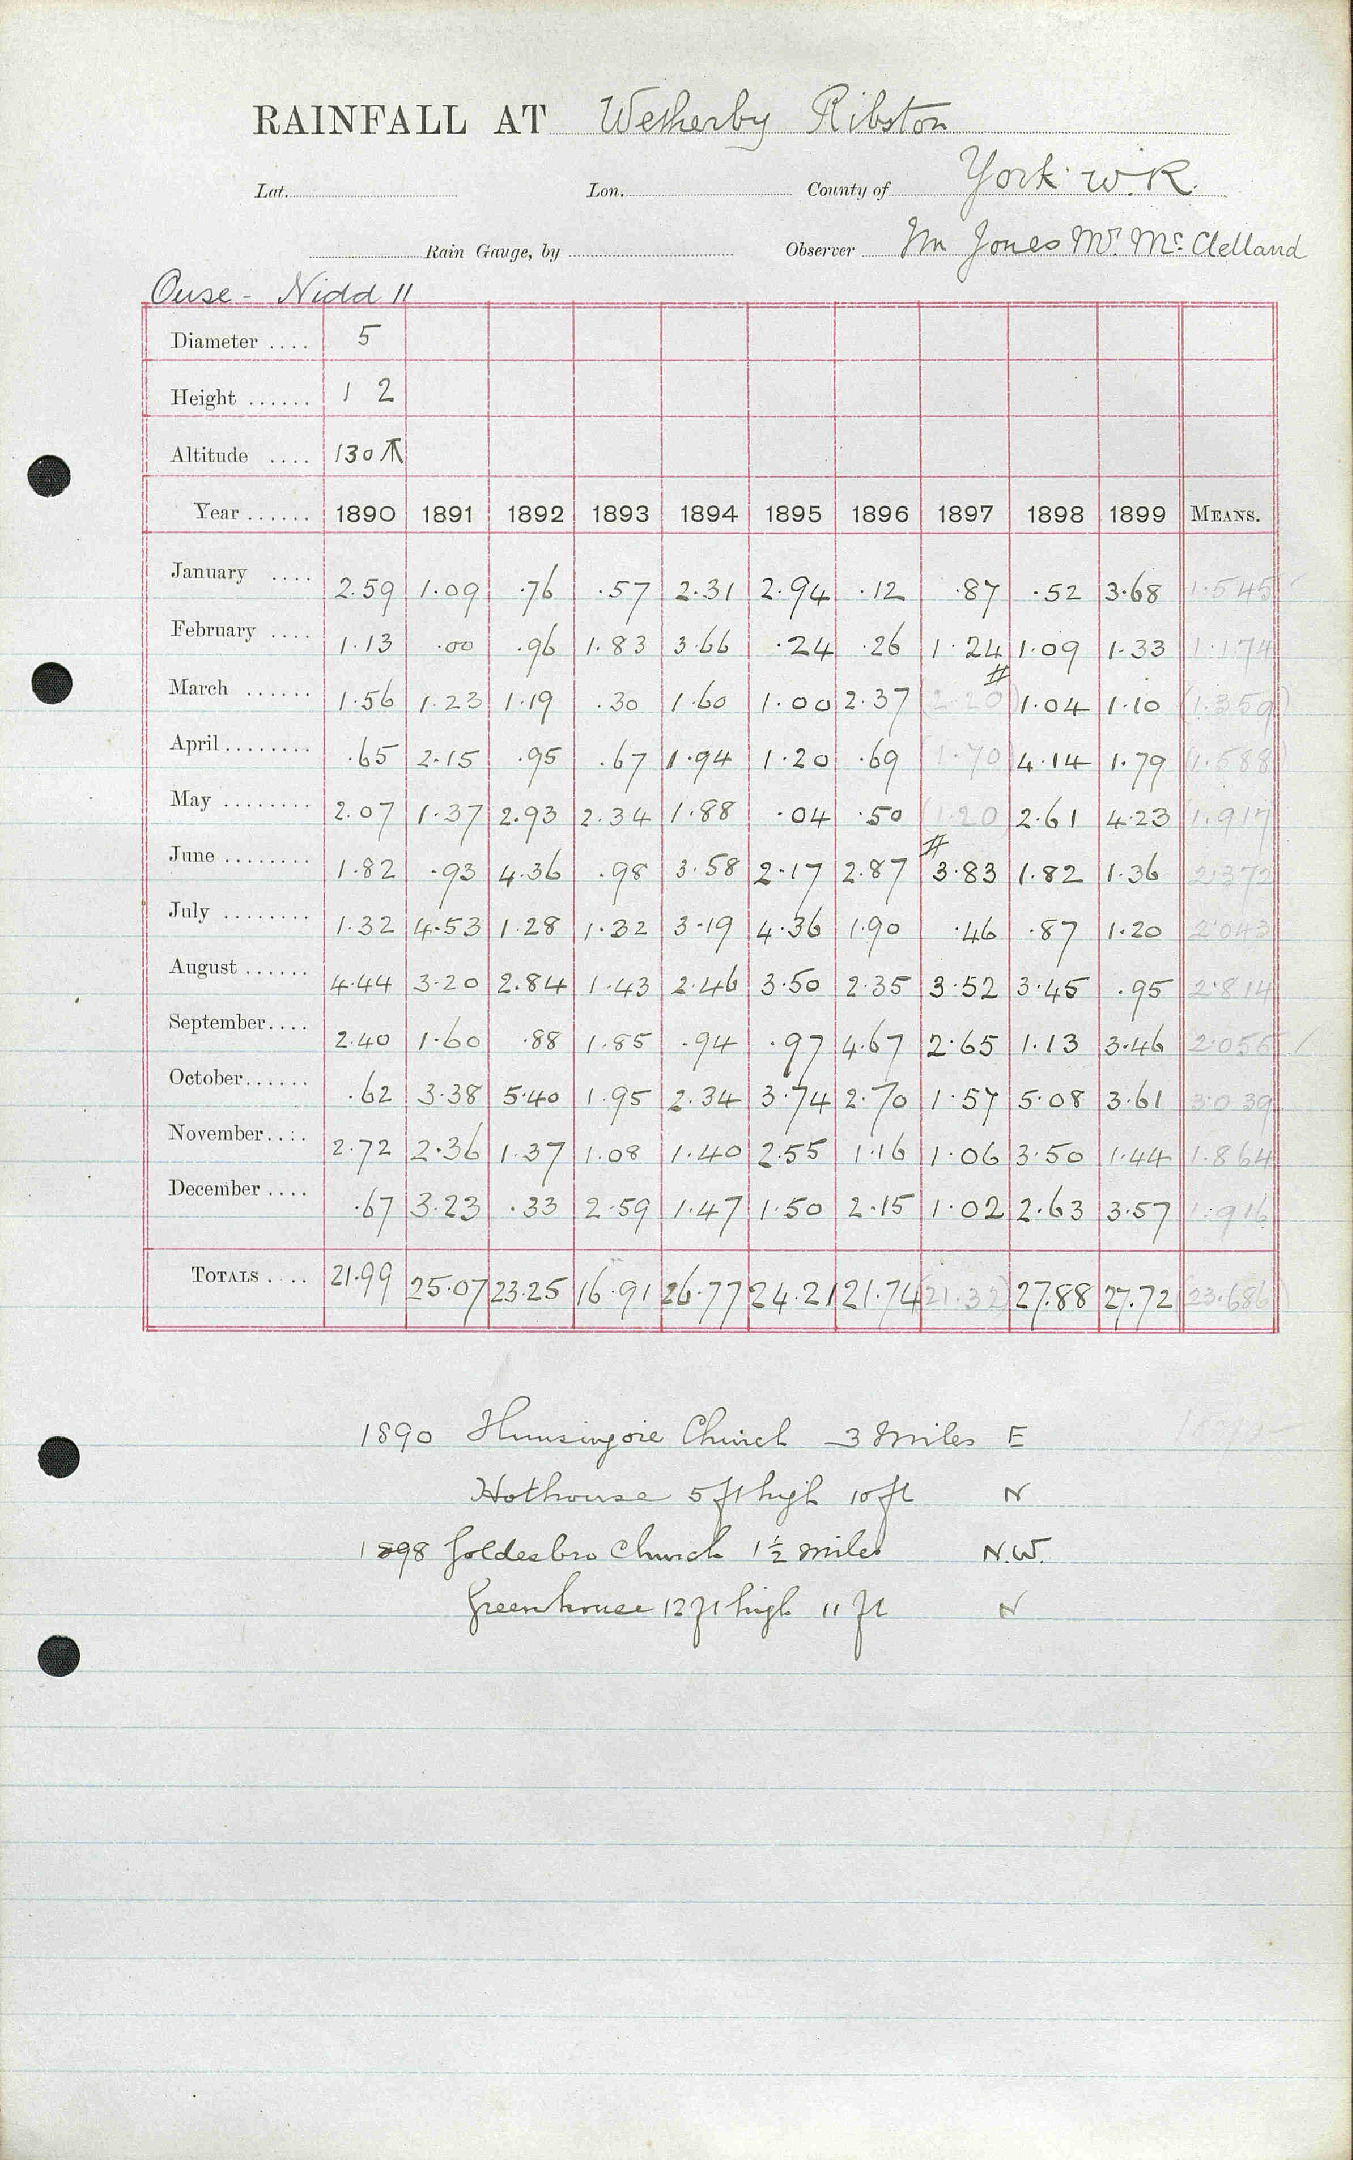 RAINFALL AT Wetherby Ribston
Lat. Lon. County of York W.R.
Rain Gauge, by Observer Mr Jones Mr. McClelland
Ouse - Nidd 11
Diameter .... 5
Height ...... 1 2
Altitude .... 130
Year ...... 1890 1891 1892 1893 1894 1895 1896 1897 1898 1899 MEANS.
January .... 2.59 1.09 .76 .57 2.31 2.94 .12 .87 .52 3.68 1.545
February .... 1.13 .00 .96 1.83 3.66 .24 .26 1.24 1.09 1.33 1.174
March ...... 1.56 1.23 1.19 .30 1.60 1.00 2.37 (2.20) # 1.04 1.10 (1.359)
April ........ .65 2.15 .95 .67 1.94 1.20 .69 (1.70) 4.14 1.79 (1.588)
May ........ 2.07 1.37 2.93 2.34 1.88 .04 .50 (1.20) 2.61 4.23 1.917
June ........ 1.82 .93 4.36 .98 3.58 2.17 2.87 # 3.83 1.82 1.36 2.372
July ........ 1.32 4.53 1.28 1.32 3.19 4.36 1.90 .46 .87 1.20 2.043
August ...... 4.44 3.20 2.84 1.43 2.46 3.50 2.35 3.52 3.45 .95 2.814
September.... 2.40 1.60 .88 1.85 .94 .97 4.67 2.65 1.13 3.46 2.055
October...... .62 3.38 5.40 1.95 2.34 3.74 2.70 1.57 5.08 3.61 3.039
November.... 2.72 2.36 1.37 1.08 1.40 2.55 1.16 1.06 3.50 1.44 1.864
December .... .67 3.23 .33 2.59 1.47 1.50 2.15 1.02 2.63 3.57 1.916
TOTALS .... 21.99 25.07 23.25 16.91 26.77 24.21 21.74 (21.32) 27.88 27.72 (23.686)
1890 Hunsingore Church 3 Miles E
Hothouse 5 ft high 10 ft N
1898 Goldesbro Church 1½ miles N.W.
Greenhouse 12 ft high 11 ft N